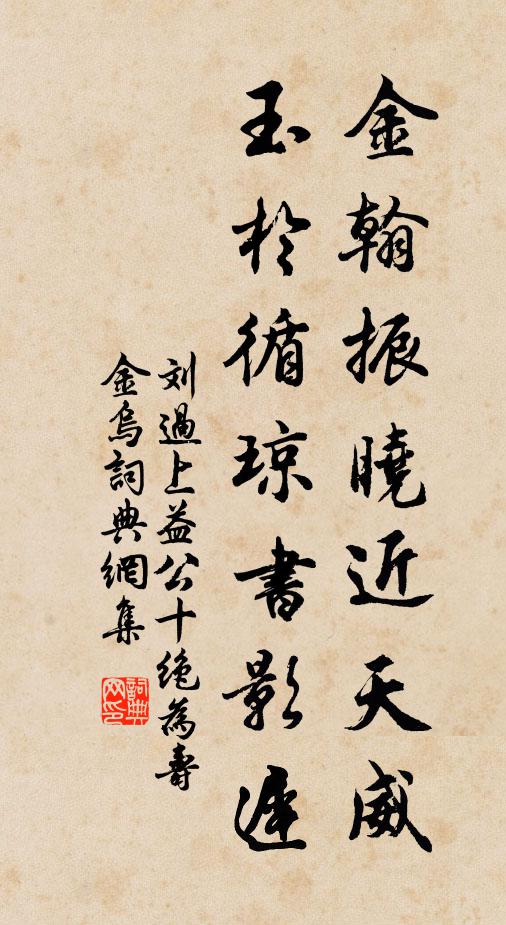 金翰振曉近天威
玉於循琼書影遲
刘過上益公十绝為壽
金烏詞典網集
詞典网印